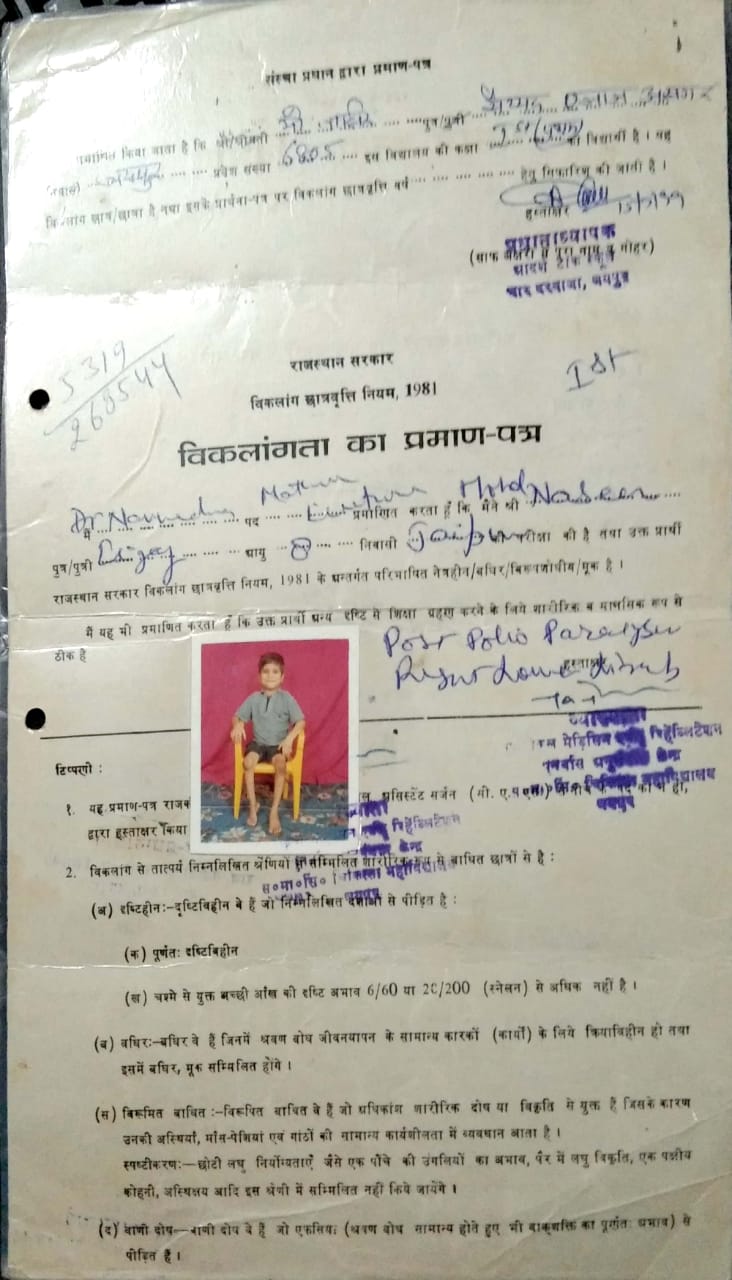 संस्था प्रधान द्वारा प्रमाण-पत्र
प्रमाणित किया जाता है कि श्री/श्रीमती ........ पुत्र/पुत्री ........
निवासी जयपुर ........ प्रवेश संख्या 6805 ........ इस विद्यालय की कक्षा ........ का विद्यार्थी है । यह
विकलांग छात्र/छात्रा है तथा इसके प्रार्थना-पत्र पर विकलांग छात्रवृत्ति वर्ष ........ हेतु सिफारिश की जाती है ।
हस्ताक्षर
प्रधानाध्यापक
(साफ अक्षरों में पूरा नाम व मोहर)
चार दरवाजा, जयपुर
5319
268544
Ist
राजस्थान सरकार
विकलांग छात्रवृत्ति नियम, 1981
विकलांगता का प्रमाण-पत्र
मैं Dr Narendra Mathur पद ........ प्रमाणित करता हूँ कि मैंने श्री Mohd Naseem
पुत्र/पुत्री ........ आयु 8 ........ निवासी Jaipur की परीक्षा की है तथा उक्त प्रार्थी
राजस्थान सरकार विकलांग छात्रवृत्ति नियम, 1981 के अन्तर्गत परिभाषित नेत्रहीन/बधिर/विरूपशोधीय/मूक है ।
मैं यह भी प्रमाणित करता हूँ कि उक्त प्रार्थी अन्य दृष्टि से शिक्षा ग्रहण करने के लिये शारीरिक व मानसिक रूप से
ठीक है
Post Polio Paralysis
Right Lower Limb
हस्ताक्षर
व्याख्याता
टिप्पणी :
१. यह प्रमाण-पत्र असिस्टेंट सर्जन
द्वारा हस्ताक्षर किया
2. विकलांग से तात्पर्य निम्नलिखित श्रेणियों में सम्मिलित शारीरिक रूप से बाधित छात्रों से है :
(अ) दृष्टिहीन:–दृष्टिविहीन वे हैं जो निम्नलिखित दशाओं से पीड़ित है :
(क) पूर्णत: दृष्टिविहीन
(ख) चश्मे से युक्त अच्छी आँख की दृष्टि अभाव 6/60 या 20/200 (स्नेलन) से अधिक नहीं है ।
(ब) बधिर:–बधिर वे हैं जिनमें श्रवण बोध जीवनयापन के सामान्य कारकों (कार्यों) के लिये क्रियाविहीन हो तथा
इसमें बधिर, मूक सम्मिलित होंगे ।
(स) विरूपित बाधित :–विरूपित बाधित वे हैं जो अधिकांश शारीरिक दोष या विकृति से युक्त हैं जिसके कारण
उनकी अस्थियाँ, माँस-पेशियां एवं गांठों की सामान्य कार्यशीलता में व्यवधान आता है ।
स्पष्टीकरण:–छोटी लघु निर्योग्यताएँ जैसे एक पाँचे की उंगलियों का अभाव, पैर में लघु विकृति, एक पक्षीय
कोहनी, अस्थिक्षय आदि इस श्रेणी में सम्मिलित नहीं किये जायेंगे ।
(द) वाणी दोष–वाणी दोष वे हैं जो (श्रवण बोध सामान्य होते हुए भी वाक्शक्ति का पूर्णत: अभाव) से
पीड़ित हैं ।